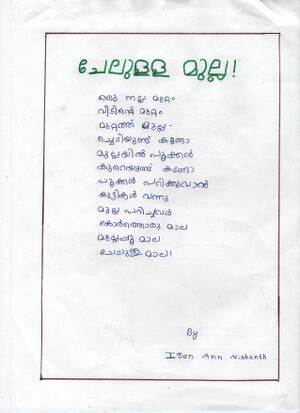 ചേലുള്ള മുല്ല!
ഒരു നല്ല മുറ്റം
വീടിന്റെ മുറ്റം
മുറ്റത്ത് മുല്ല -
ച്ചെടിയുണ്ട് കണ്ടോ
മുല്ലയിൽ പൂക്കൾ
കുറെയുണ്ട് കണ്ടോ
പൂക്കൾ പറിക്കുവാൻ
കുട്ടികൾ വന്നു
മുല്ല പറിച്ചവർ
കൊർത്തൊരു മാല
മുല്ലപ്പൂ മാല
ചേലുള്ള മാല!
By
Ann Nishanth